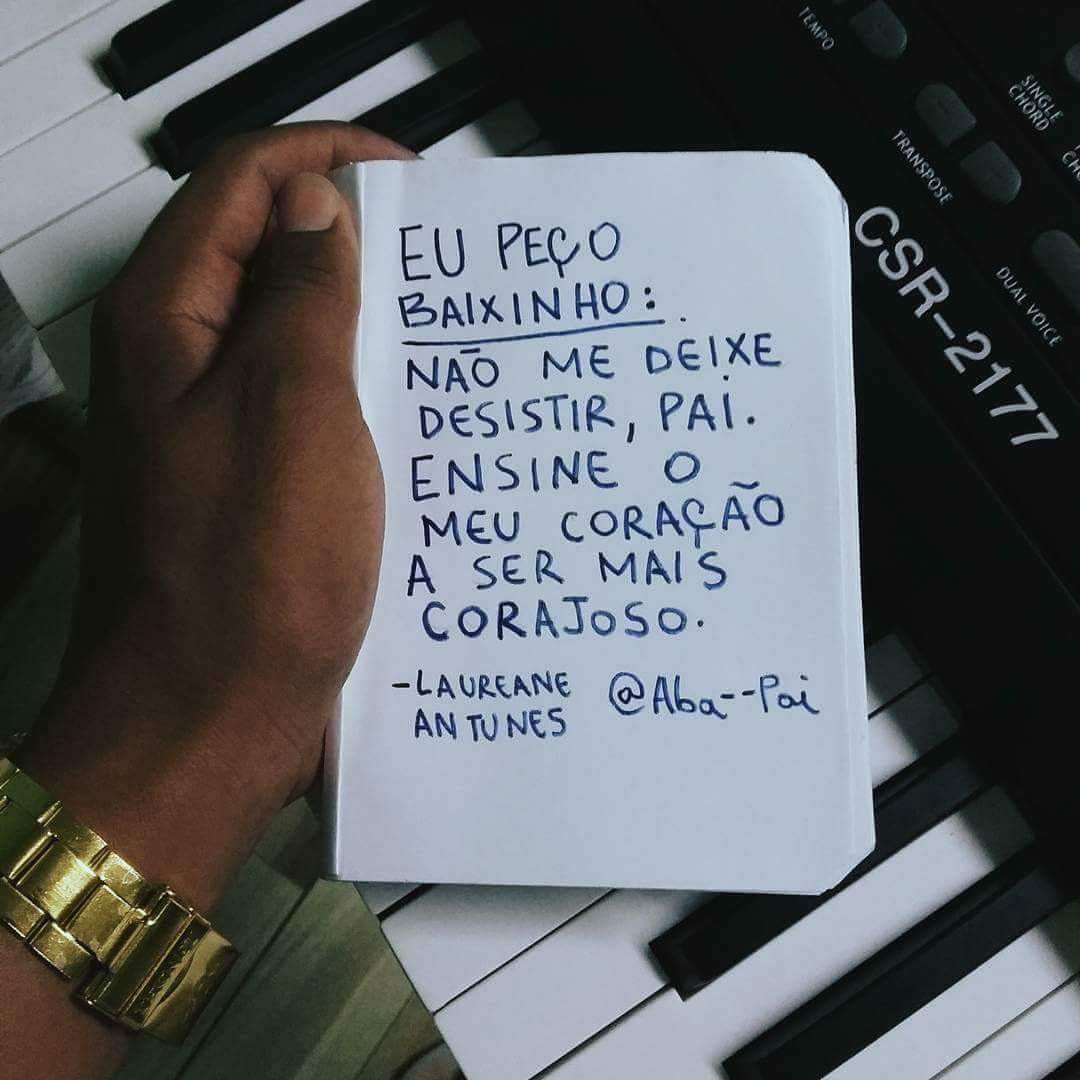 EU PEÇO
BAIXINHO:
NÃO ME DEIXE
DESISTIR, PAI.
ENSINE O
MEU CORAÇÃO
A SER MAIS
CORAJOSO.
-LAUREANE
ANTUNES
@Aba--Pai
TEMPO
SINGLE
CHORD
TRANSPOSE
DUAL VOICE
CSR-2177